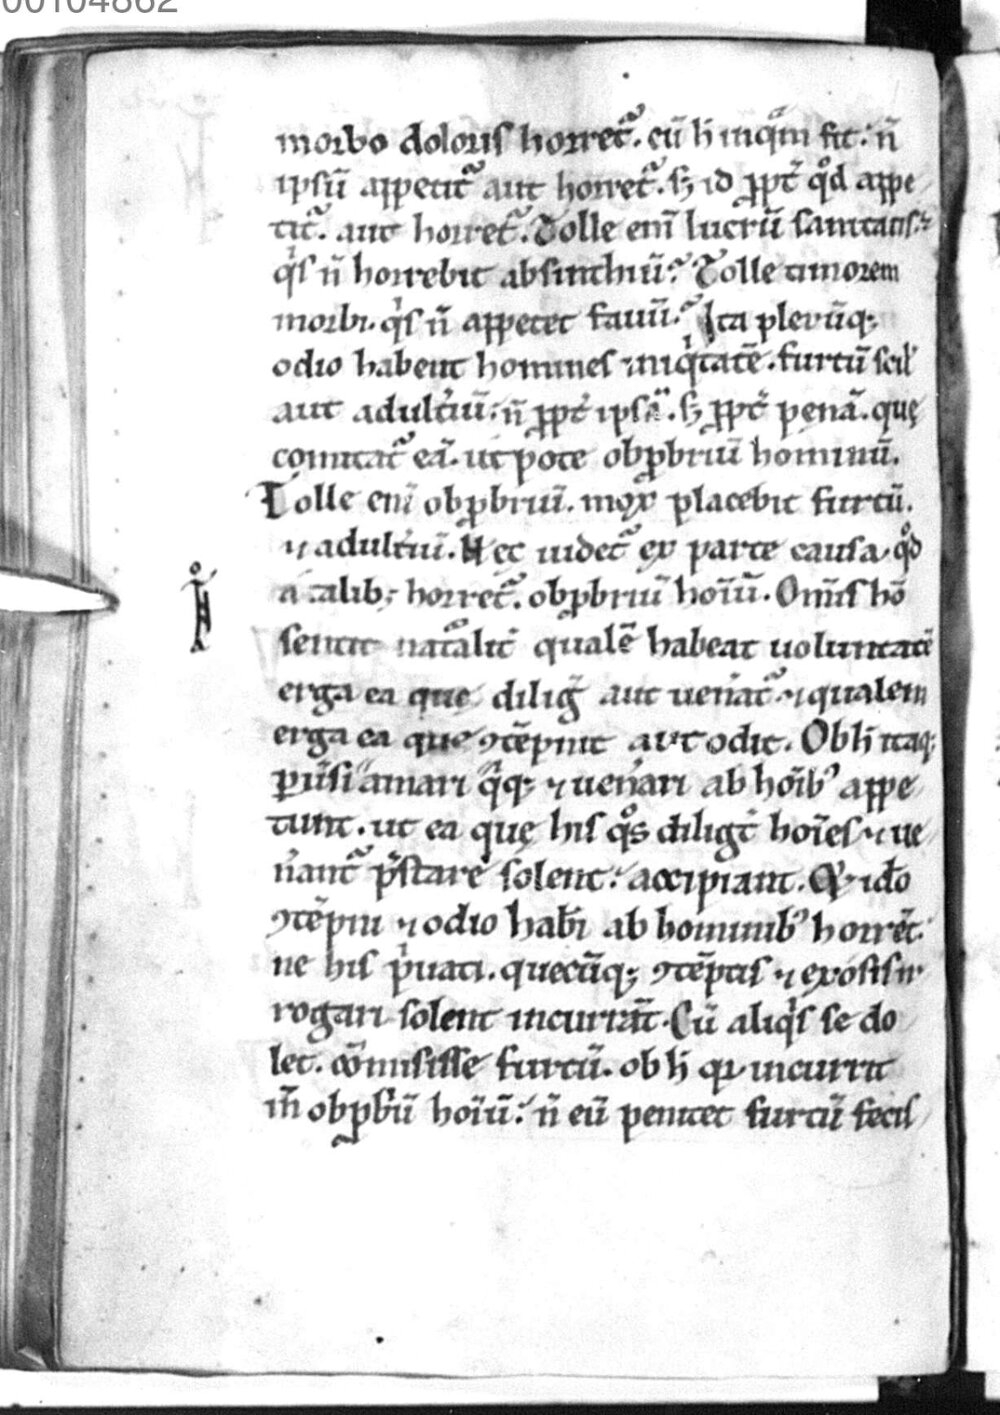 00104862
morbo doloris horret᷑. cū h̄ inqͣm fit: n̄
ipsū appetit᷑ aut horret᷑. sꝫ id ꝓpt̄ qͦd appe
tit᷑. aut horret᷑. Tolle eni̅ lucrū sanitatis:
qͥs n̄ horrebit absinthiū? Tolle timorem
morbi. qͥs n̄ appetet fauū? Ita plerūqꝫ
odio habent homines iniqͥtatē. furtū scil'
aut adult̾iū. n̄ ꝓpt̾ ipsa. sꝫ ꝓpt̾ penā. quę
comitat᷑ eā. ut pote obꝓbriū hominū.
Tolle eni̅ obꝓbriū. mox placebit furtū.
⁊ adult̾iū. Nec uidet᷑ ex parte causa. qͦd
a talibꝫ horret᷑. obꝓbriū hoi̅ū. Omīs hō
sentit nat᷑alit̾ qualē habeat uoluntatē
erga ea que dilig̾ aut uen̾at᷑. ⁊ qualem
erga ea que ꝯtēpnit aut odit. Ob h̄ itaqꝫ
amari qͥqꝫ ⁊ uen̾ari ab hoi̅bꝰ appe
tunt. ut ea quę his qͦs diligt̄ hoi̅es ⁊ ue
n̾ant᷑ p̄stare solent: accipiant. Et ido̅
ꝯtēpni ⁊ odio hab̾i ab hominibꝰ horrēt.
ne his pͥuati. quecūqꝫ ꝯtēptis ⁊ exosis ir
rogari solent incurrāt. Cū aliqͥs se do
let. cōmisisse furtū. ob h̄ qꝛ incurrit
in̅ obꝓbͥū hoi̅ū: n̄ eū penitet furtū fecis